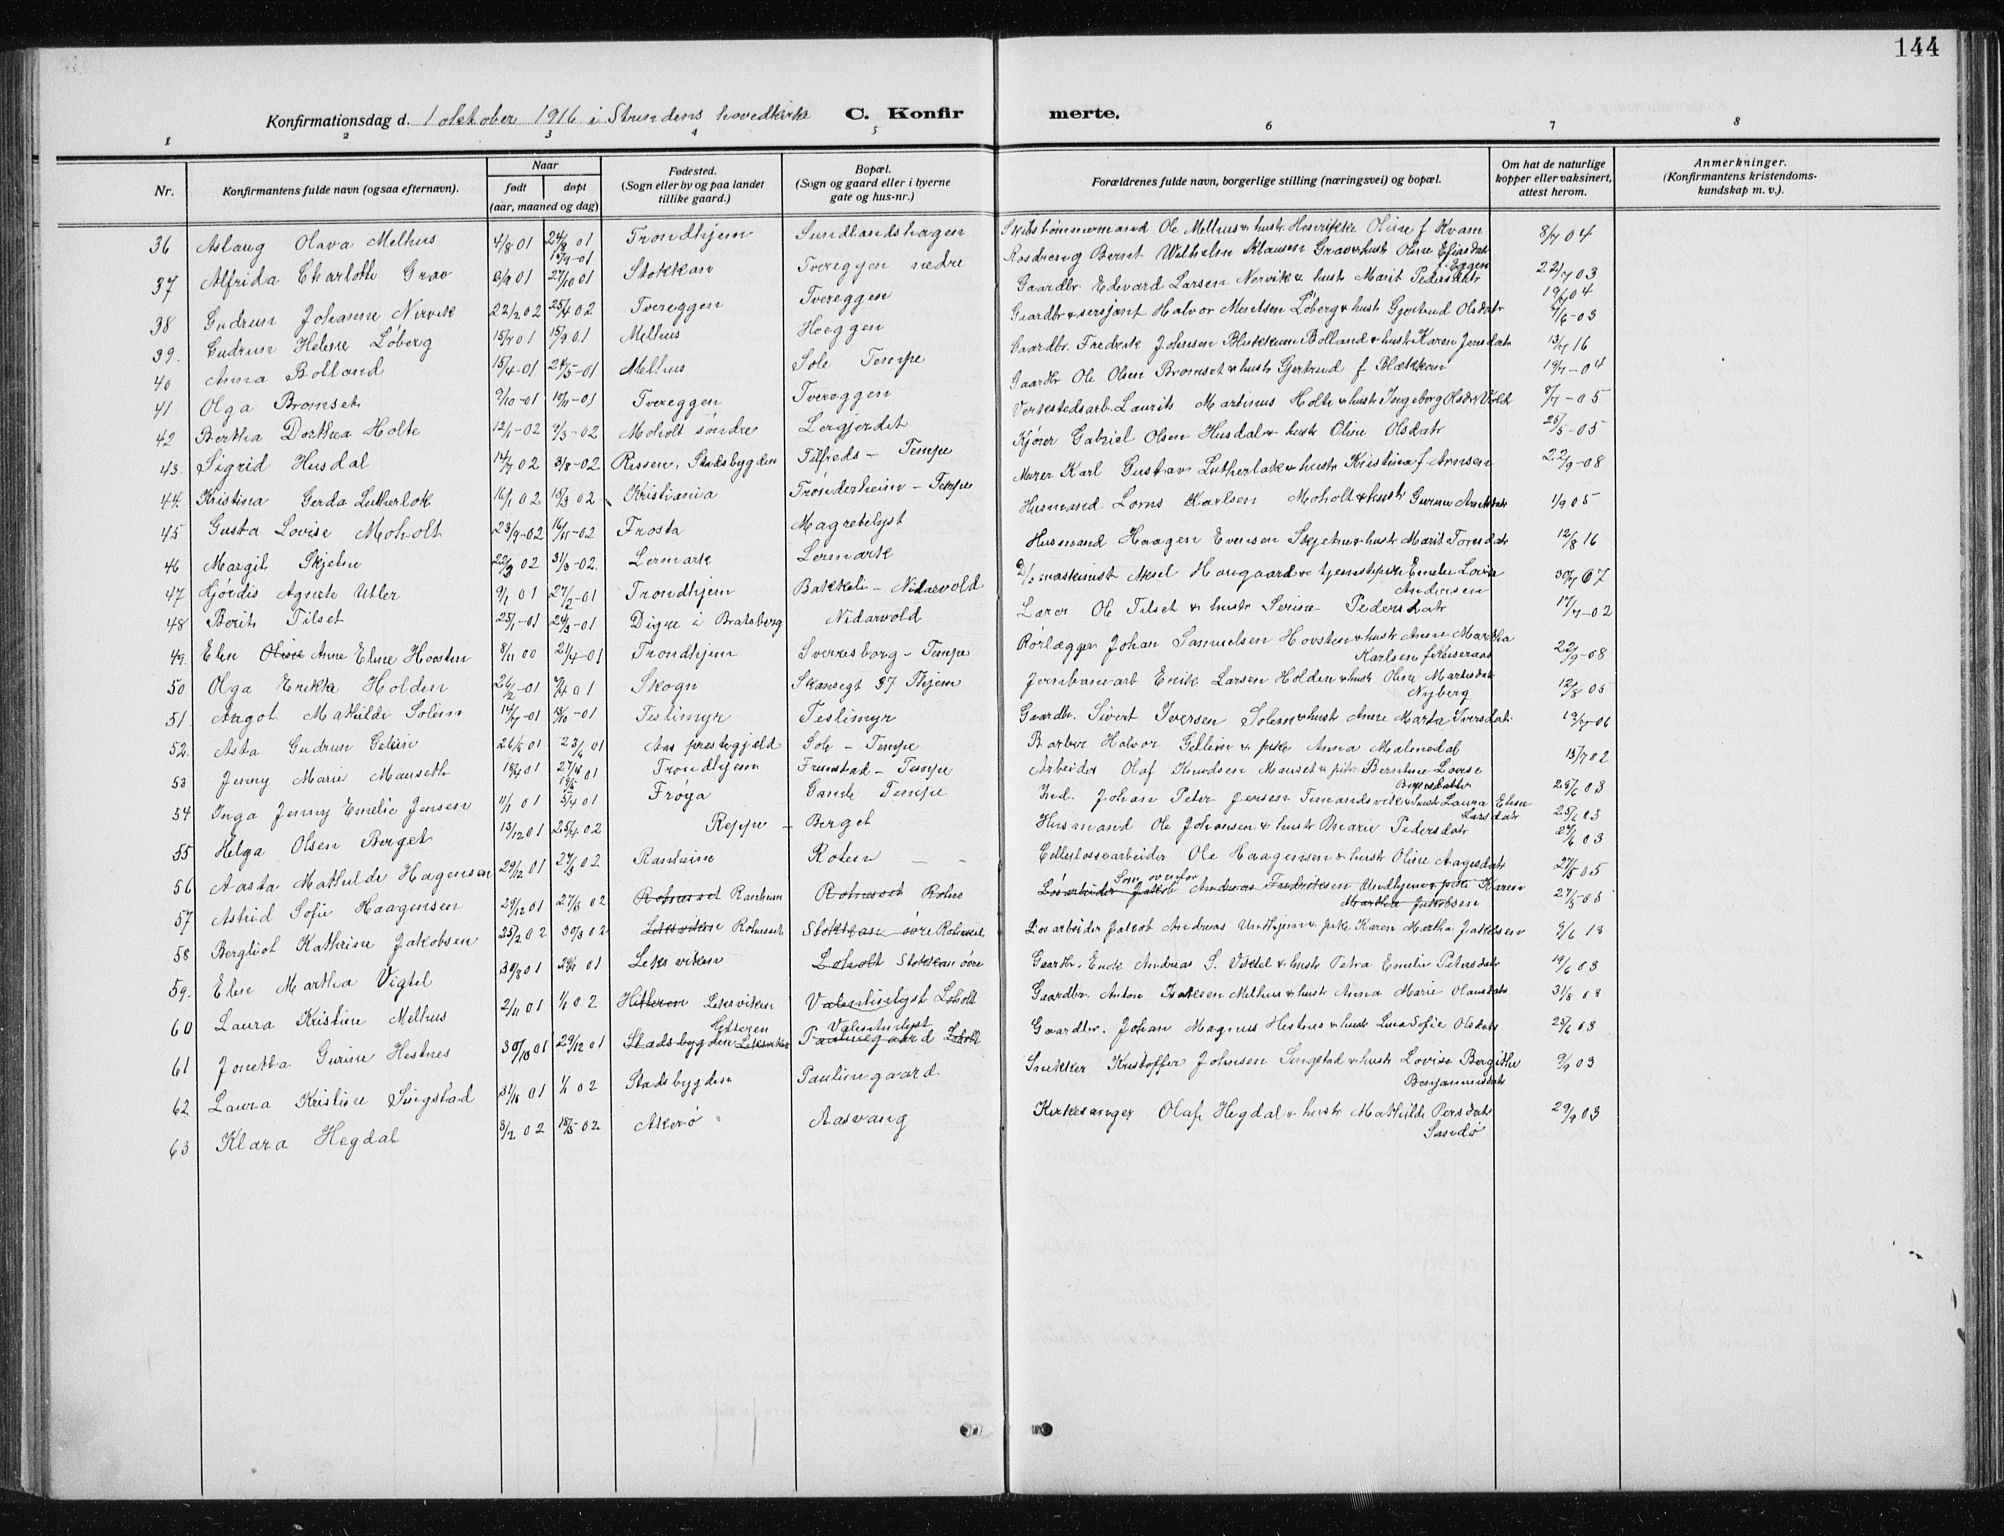 144
Konfirmationsdag d. 1 oktober 1916 i Strindens hovedkirke C. Konfirmerte.
1 2 3 4 5 6 7 8
Nr. Konfirmantens fulde navn (ogsaa efternavn). Naar født døpt (aar, maaned og dag) Fødested. (Sogn eller by og paa landet tillike gaard.) Bopæl. (Sogn og gaard eller i byerne gate og hus-nr.) Forældrenes fulde navn, borgerlige stilling (næringsvei) og bopæl. Om hat de naturlige kopper eller vaksinert, attest herom. Anmerkninger. (Konfirmantens kristendomskundskap m. v.).
36 Aslaug Olava Melhus 4/8 01 24/8 01 Trondhjem Sundlandshagen Skibstømmermand Ole Melhus & hustr. Oline f Kvam 8/7 04
37 Alfrida Charlotte Grav 6/9 01 27/10 01 Stokkan Tvereggen nedre Bernt Wilhelm Klausen Grav & hustr Oline Eliasdatr Eggen 22/7 03
38 Gudrun Johanne Nervik 22/2 02 25/4 02 Tvereggen Tvereggen Gaardbr. Edvard Larsen Nervik & hustr Marit Pedersdatr 19/6 04
39. Gudrun Helene Løberg 15/7 01 15/9 01 Melhus Hoeggen Gaardbr & sersjant Halvor Løberg & hustr Gjertrud Olsdatr 7/6-03
40 Anna Bolland 15/4-01 24/5-01 Melhus Sole Tempe Gaardbr. Fredrik Johnsen Bolland & hustr Karen Jensdatr 13/7 16
41 Olga Bromset 9/10-01 10/11-01 Tvereggen Tvereggen Gaardbr Ole Olsen Bromset & hustr Gjertrud f Blekkan 19/7-04
42 Bertha Dorthea Holte 12/1-02 9/3-02 Moholt søndre Lergjerdet Verkstedsarb. Laurits Martinus Holte & hustr Ingeborg Olsdatr 8/7-05
43. Sigrid Husdal 14/7 02 3/8-02 Rissen, Stadsbygden Tilfreds - Tempe Kjører Gabriel Olsen Husdal & hustr Oline Olsdatr 25/5-05
44. Kristina Gerda Lutherlok 16/1 02 15/3 02 Kristiania Trønderheim - Tempe Murer Karl Gustav Lutherlok & hustr Kristina f Arnsen 22/9-08
45 Gusta Lovise Moholt 23/9-02 16/11-02 Frosta Magrebelyst Husmand Karlsen Moholt & hustr Gurine 1/9 05
46 Margit Skjetne 22/3 02 31/3-02 Lermark Lermark Husmand Haagen Evensen Skjetne & hustr Marit Toresdatr 12/8 16
47 Hjørdis Agnete Utler 9/1 01 27/2-01 Trondhjem Bakkeli - Nidarvold maskinist Aksel Haugaard & tjenestepike Emelie Lovise Andersen
48 Berit Tilset 25/1-01 24/3-01 Digre i Bratsberg Nidarvold Lærer Ole Tilset & hustr Serine Pedersdatr 17/7-02
49. Elen Olise Anne Eline Hovsten 8/11 00 21/4-01 Trondhjem Sverresborg - Tempe Rørlegger Johan Samuelsen Hovsten & hustr Anne Martha Karlsen 22/9-08
50 Olga Erikka Holden 26/2-01 7/4 01 Skogn Skansegt 37 Thjem Jernbanearb Erik Larsen Holden & hustr Oline Martisdat Nyberg 12/8 05
51 Aagot Mathilde Solem 14/7-01 13/10-01 Teslimyr Teslimyr Gaardbr. Sivert Iversen Solem & hustr Anne Marta Iversdatr 19/7-06
52. Asta Gudrun Gelein 26/5 01 23/6 01 Aas prestegjeld Sole - Tempe Barber Halvor Gellein & pike Anna Malmedal 15/7 02
53 Jenny Marie Mauseth 01 01 Trondhjem Frunstad - Tempe Arbeider Olaf Knudsen Mauset & pike Berntine Lovise
54 Inga Jenny Emelie Jensen 11/1 01 5/4 01 Frøya Gande Tempe Ind. Johan Peter Jensen & hustr Laura Eline Larsdatr 25/6 03
55 Helga Olsen Berget 13/12 01 25/4 02 Reppe - Berget Husmand Ole Johansen & hustr Marie Pedersdatr 6 03
56 Aasta Mathilde Hagensen 29/12 01 27/3 02 Ranheim Roten - - Cellulosearbeider Ole Haagensen & hustr Oline Aagesdatr 27/5 05
57 Astrid Sofie Haagensen 29/12 01 27/3 02 Rohusset Ranheim Rohusset Rotne Som ovenfor Løsarbeider Jakob Andreas Fredriksen Undhjem & pike Karen Martha Jakobsen 27/5-05
58 Bergliot Kathrine Jakobsen 25/2 02 30/3 02 Leksviken Rohusset Stokkan øvre Rohusset Løsarbeider Jakob Andreas Undhjem & pike Karen Martha Jakobsen 9/6 13
59. Elen Martha Vigtel 30/8 01 01 Leksviken Loholt Stokkan øvre Gaardbr. Andreas S. Viktel & hustr Petra Emelie Petersdatr 19/6 03
60 Laura Kristine Melhus 2/11 01 1/1 02 Hitteren Leksviken Valentinlyst Loholt Gaardbr. Anton Melhus & hustr Anna Marie Olausdatr 31/8 03
61 Jonetta Gurine Hestnes 30/10 01 29/12 01 Stadsbygden Leksviken Hitteren Paulinegaard Loholt Valentinlyst Gaardbr. Johan Magnus Hestnes & hustr Lina Sofie Olsdatr 25/6 03
62 Laura Kristine Singstad 31/10 01 1/1 02 Stadsbygden Paulinegaard Snekker Kristoffer Johnsen Singstad & hustr Lovise Bergitha Benjaminsdatr 9/9 03
63 Klara Hegdal 3/2 02 18/5-02 Askerø Aasvang Kirkesanger Olaf Hegdal & hustr Mathilde Persdatr Sandø 29/9 03